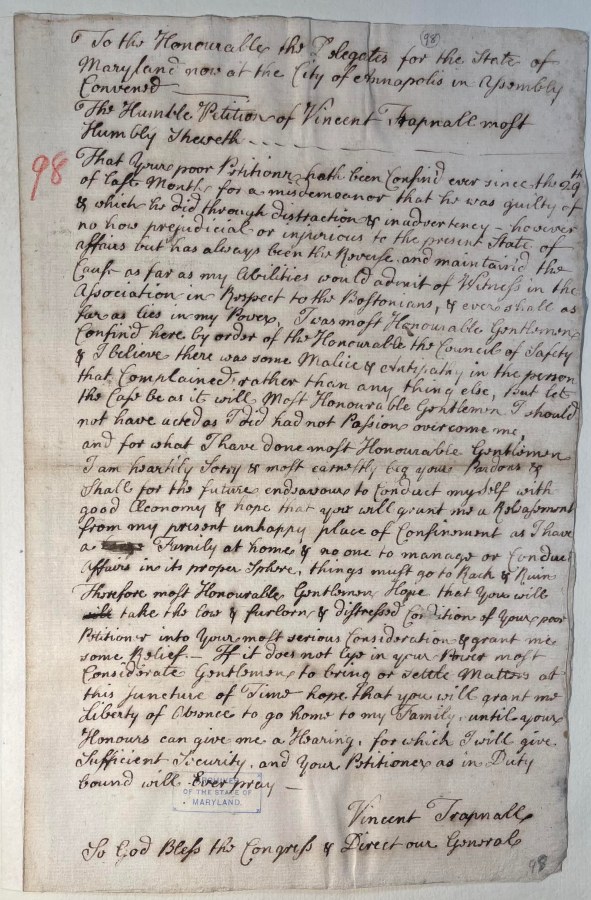 98
To the Honourable the Delegates for the State of
Maryland now at the City of Annapolis in Assembly
Convened
The Humble Petition of Vincent Trapnall most
Humbly Sheweth
98
That Your poor Petitioner hath been Confin'd ever since the 29th
of last Month for a misdemeanor that he was guilty of
& which he did through distraction & inadvertency - however
no how prejudicial or injurious to the present State of
affairs but has always been the Reverse and maintain'd the
Cause as far as my Abilities would admit of Witness in the
Association in Respect to the Bostonians, & ever shall as
far as lies in my Power, I was most Honourable Gentlemen
Confind here by order of the Honourable the Council of Safety
& I believe there was some Malice & Antipathy in the person
that Complained rather than any thing else, But let
the Case be as it will Most Honourable Gentlemen I should
not have acted as I did had not Passion overcome me
and for what I have done most Honourable Gentlemen
I am heartily Sorry & most earnestly beg your Pardons &
Shall for the future endeavour to Conduct myself with
good Œconomy & hope that you will grant me a Releasement
from my present unhappy place of Confinement as I have
a Family at home & no one to manage or Conduct
Affairs in its proper Sphere, things must go to Rack & Ruin
Therefore most Honourable Gentlemen Hope that You will
take the low & furlorn & distressed Condition of Your poor
Petitioner into Your most serious Consideration & grant me
some Relief - If it does not lye in your Power most
Considerate Gentlemen to bring or settle Matters at
this Juncture of Time hope that you will grant me
Liberty of Absence to go home to my Family, until your
Honours can give me a Hearing, for which I will give
Sufficient Security, and Your Petitioner as in Duty
bound will Ever pray
OF THE STATE OF
MARYLAND.
Vincent Trapnall
So God Bless the Congress & Direct our General
98